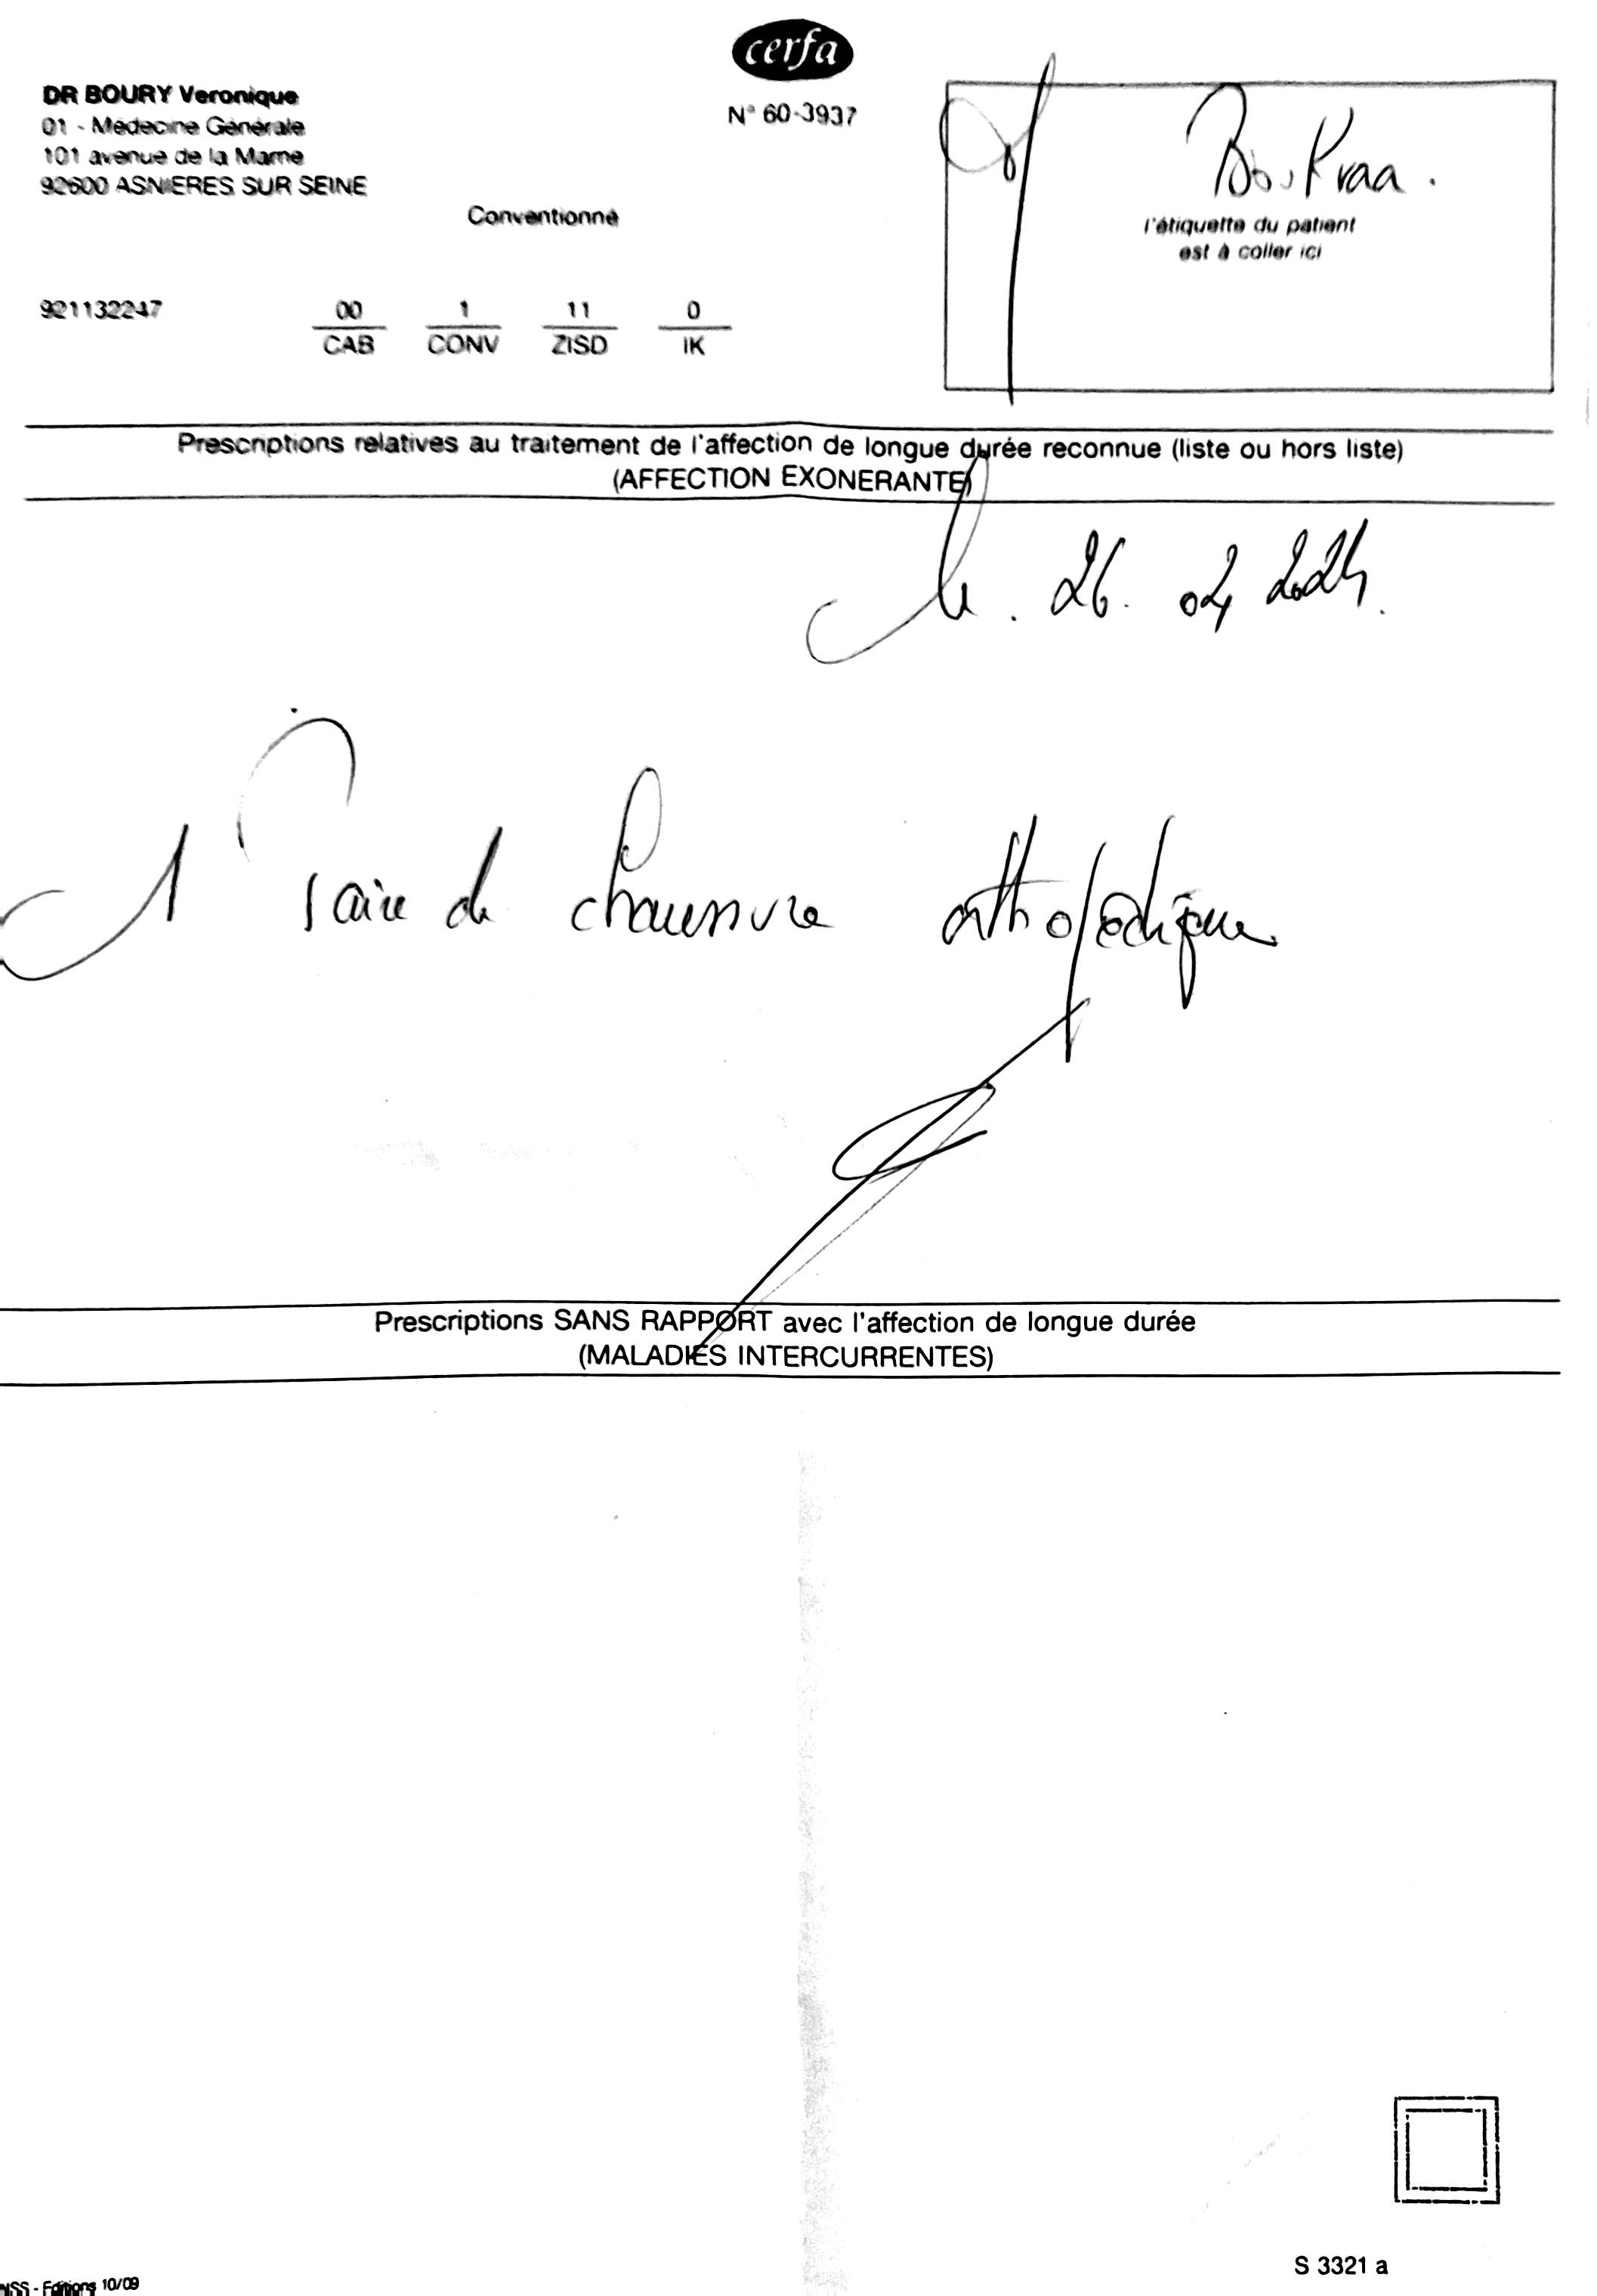 cerfa
N° 60-3937
DR BOURY Veronique
01 - Médecine Générale
101 avenue de la Marne
92600 ASNIERES SUR SEINE
Conventionné
921132247
00 1 11 0
CAB CONV ZISD IK
l'étiquette du patient
est à coller ici
Prescriptions relatives au traitement de l'affection de longue durée reconnue (liste ou hors liste)
(AFFECTION EXONERANTE)
le . 26. 04 2024.
1 Paire de chaussure orthopédique
Prescriptions SANS RAPPORT avec l'affection de longue durée
(MALADIES INTERCURRENTES)
S 3321 a
Editions 10/09